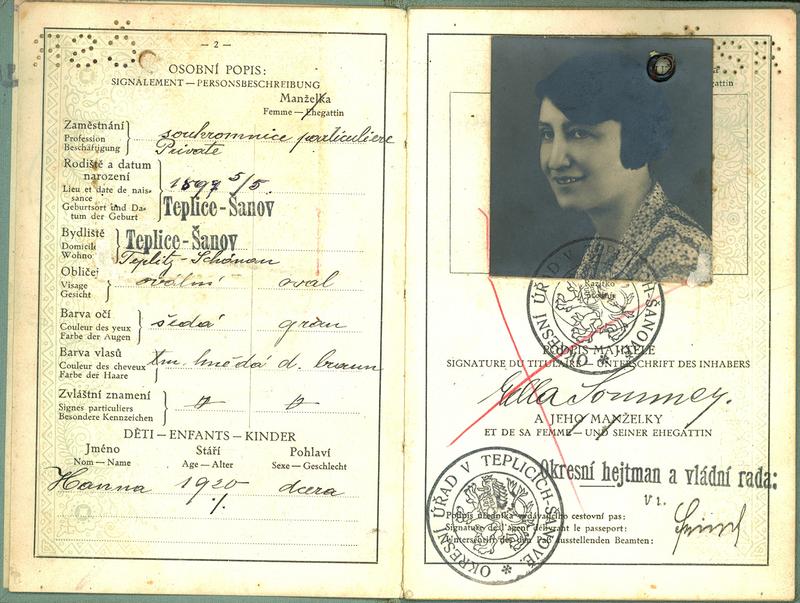 — 2 —
OSOBNÍ POPIS:
SIGNALEMENT — PERSONSBESCHREIBUNG
Manželka
Femme — Ehegattin
Zaměstnání
Profession
Beschäftigung
soukromnice particuliere
Private
Rodiště a datum
narození
Lieu et date de nais-
sance
Geburtsort und Da-
tum der Geburt
1897 5/5.
Teplice-Šanov
Bydliště
Domicile
Wohno
Teplice-Šanov
Teplitz-Schönau
Obličej
Visage
Gesicht
ovální oval
Barva očí
Couleur des yeux
Farbe der Augen
šedá grau
Barva vlasů
Couleur des cheveux
Farbe der Haare
tm. hnědá d. braun
Zvláštní znamení
Signes particuliers
Besondere Kennzeichen
DĚTI — ENFANTS — KINDER
Jméno Stáří Pohlaví
Nom — Name Age — Alter Sexe — Geschlecht
Hanna 1920 dcera
gattin
Razítko
OKRESNÍ ÚŘAD V TEPLICÍCH-ŠANOVĚ
PODPIS MAJITELE
SIGNATURE DU TITULAIRE — UNTERSCHRIFT DES INHABERS
Ella Sommer.
A JEHO MANŽELKY
ET DE SA FEMME — UND SEINER EHEGATTIN
Okresní hejtman a vládní rada:
v z.
OKRESNÍ ÚŘAD V TEPLICÍCH-ŠANOVĚ.
Podpis úředníka vydávajícího cestovní pas:
Signature de l'agent délivrant le passeport:
Unterschrift des den Paß ausstellenden Beamten: